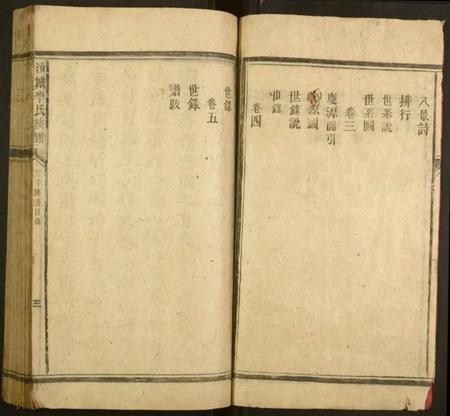 八景詩
排行
世系說
世系圖
卷三
慶源圖引
源圖
世錄說
世錄
卷四
世錄
卷五
世錄
譜跋
李氏族譜
三